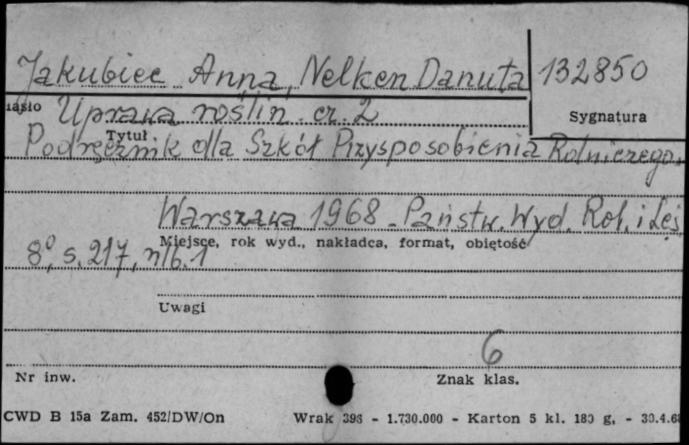 Jakubiec Anna, Nelken Danuta 132850
Uprawa roślin cz. 2
Sygnatura
Tytuł
Podręcznik dla Szkół Przysposobienia Rolniczego.
Warszawa 1968 - Państw. Wyd. Rol. i Leś
Miejsce, rok wyd., nakładca, format, objętość
8°, s. 217, nlb. 1
Uwagi
6
Nr inw.
Znak klas.
CWD B 15a Zam. 452/DW/On Wrak 398 - 1.730.000 - Karton 5 kl. 180 g, - 30.4.6